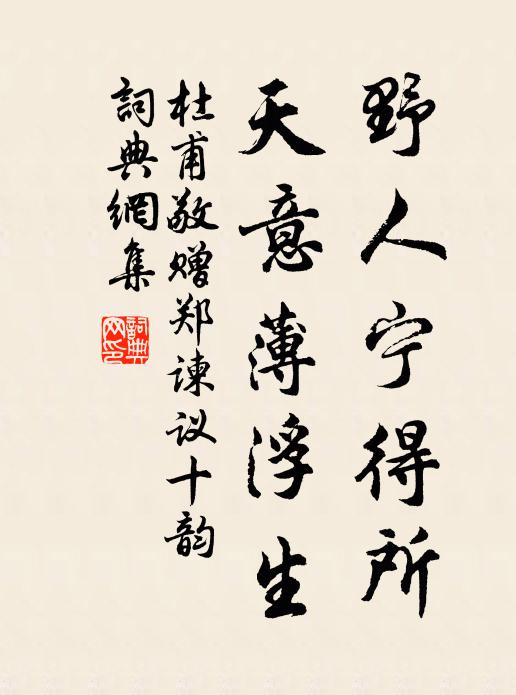 野人宁得所
天意薄浮生
杜甫敬赠郑谏议十韵
詞典網集
詞典网印